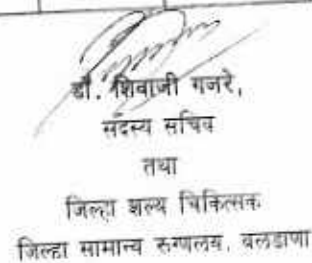 डॉ. शिवाजी गजरे,
सदस्य सचिव
तथा
जिल्हा शल्य चिकित्सक
जिल्हा सामान्य रुग्णालय, बुलडाणा